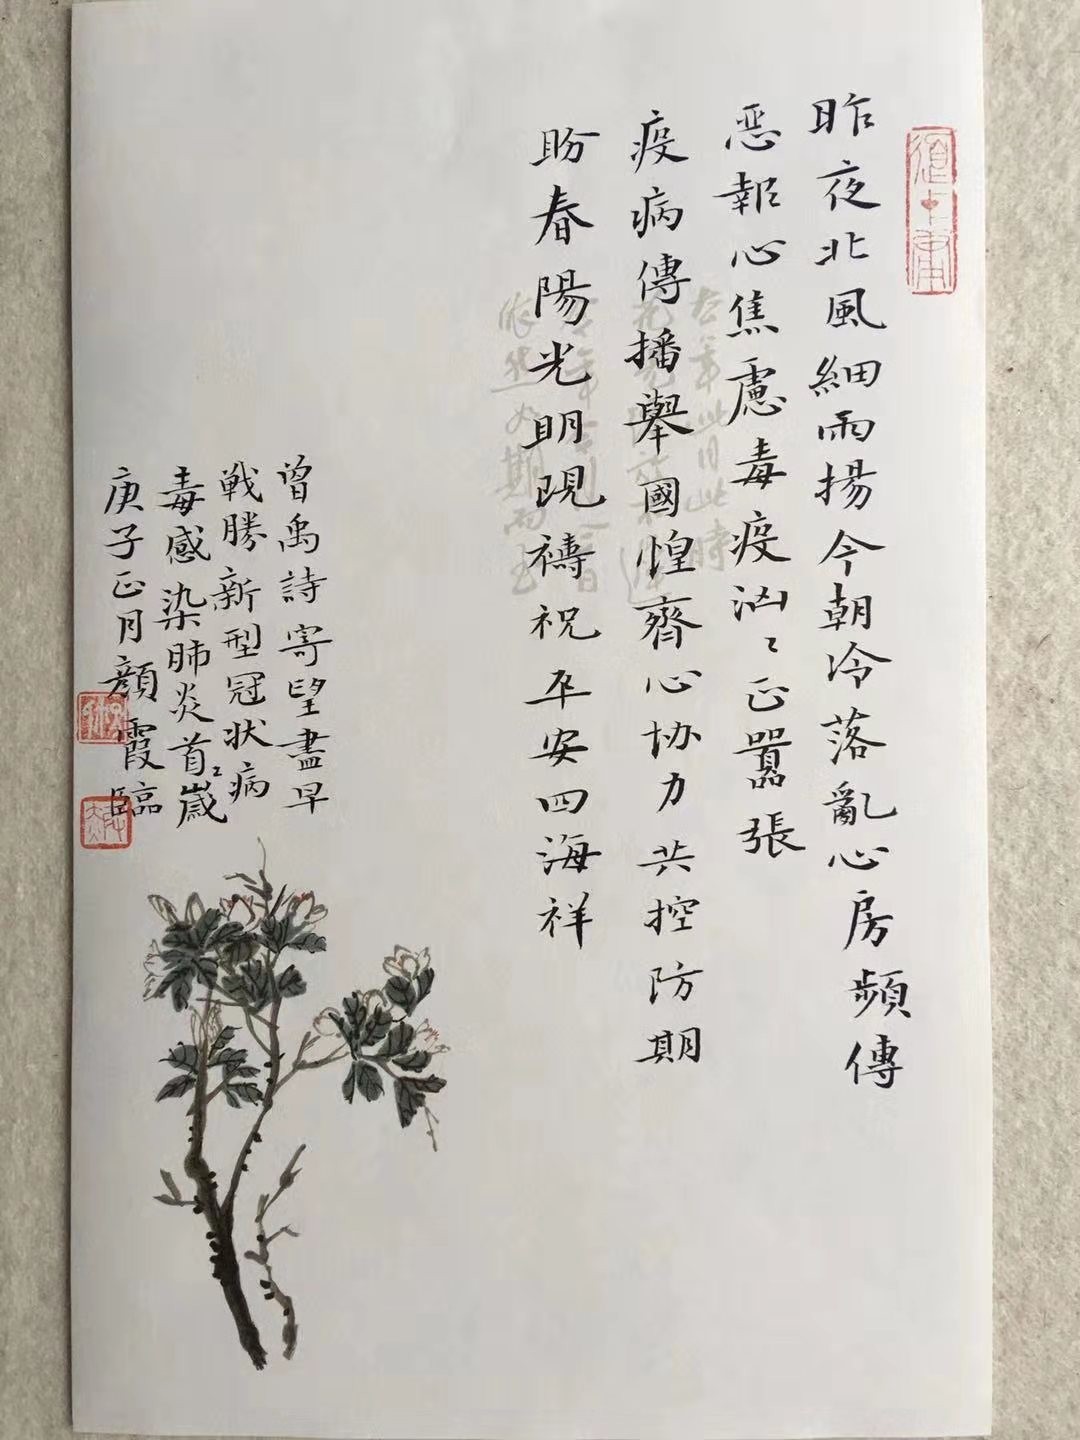 昨夜北風細雨揚今朝冷落亂心房頻傳
恶報心焦慮毒疫汹〻正囂張
疫病傳播舉國惶齊心协力共控防期
盼春陽光明現禱祝平安四海祥
曾禹詩寄望盡早
戦勝新型冠状病
毒感染肺炎首〻歳
庚子正月顔霞臨